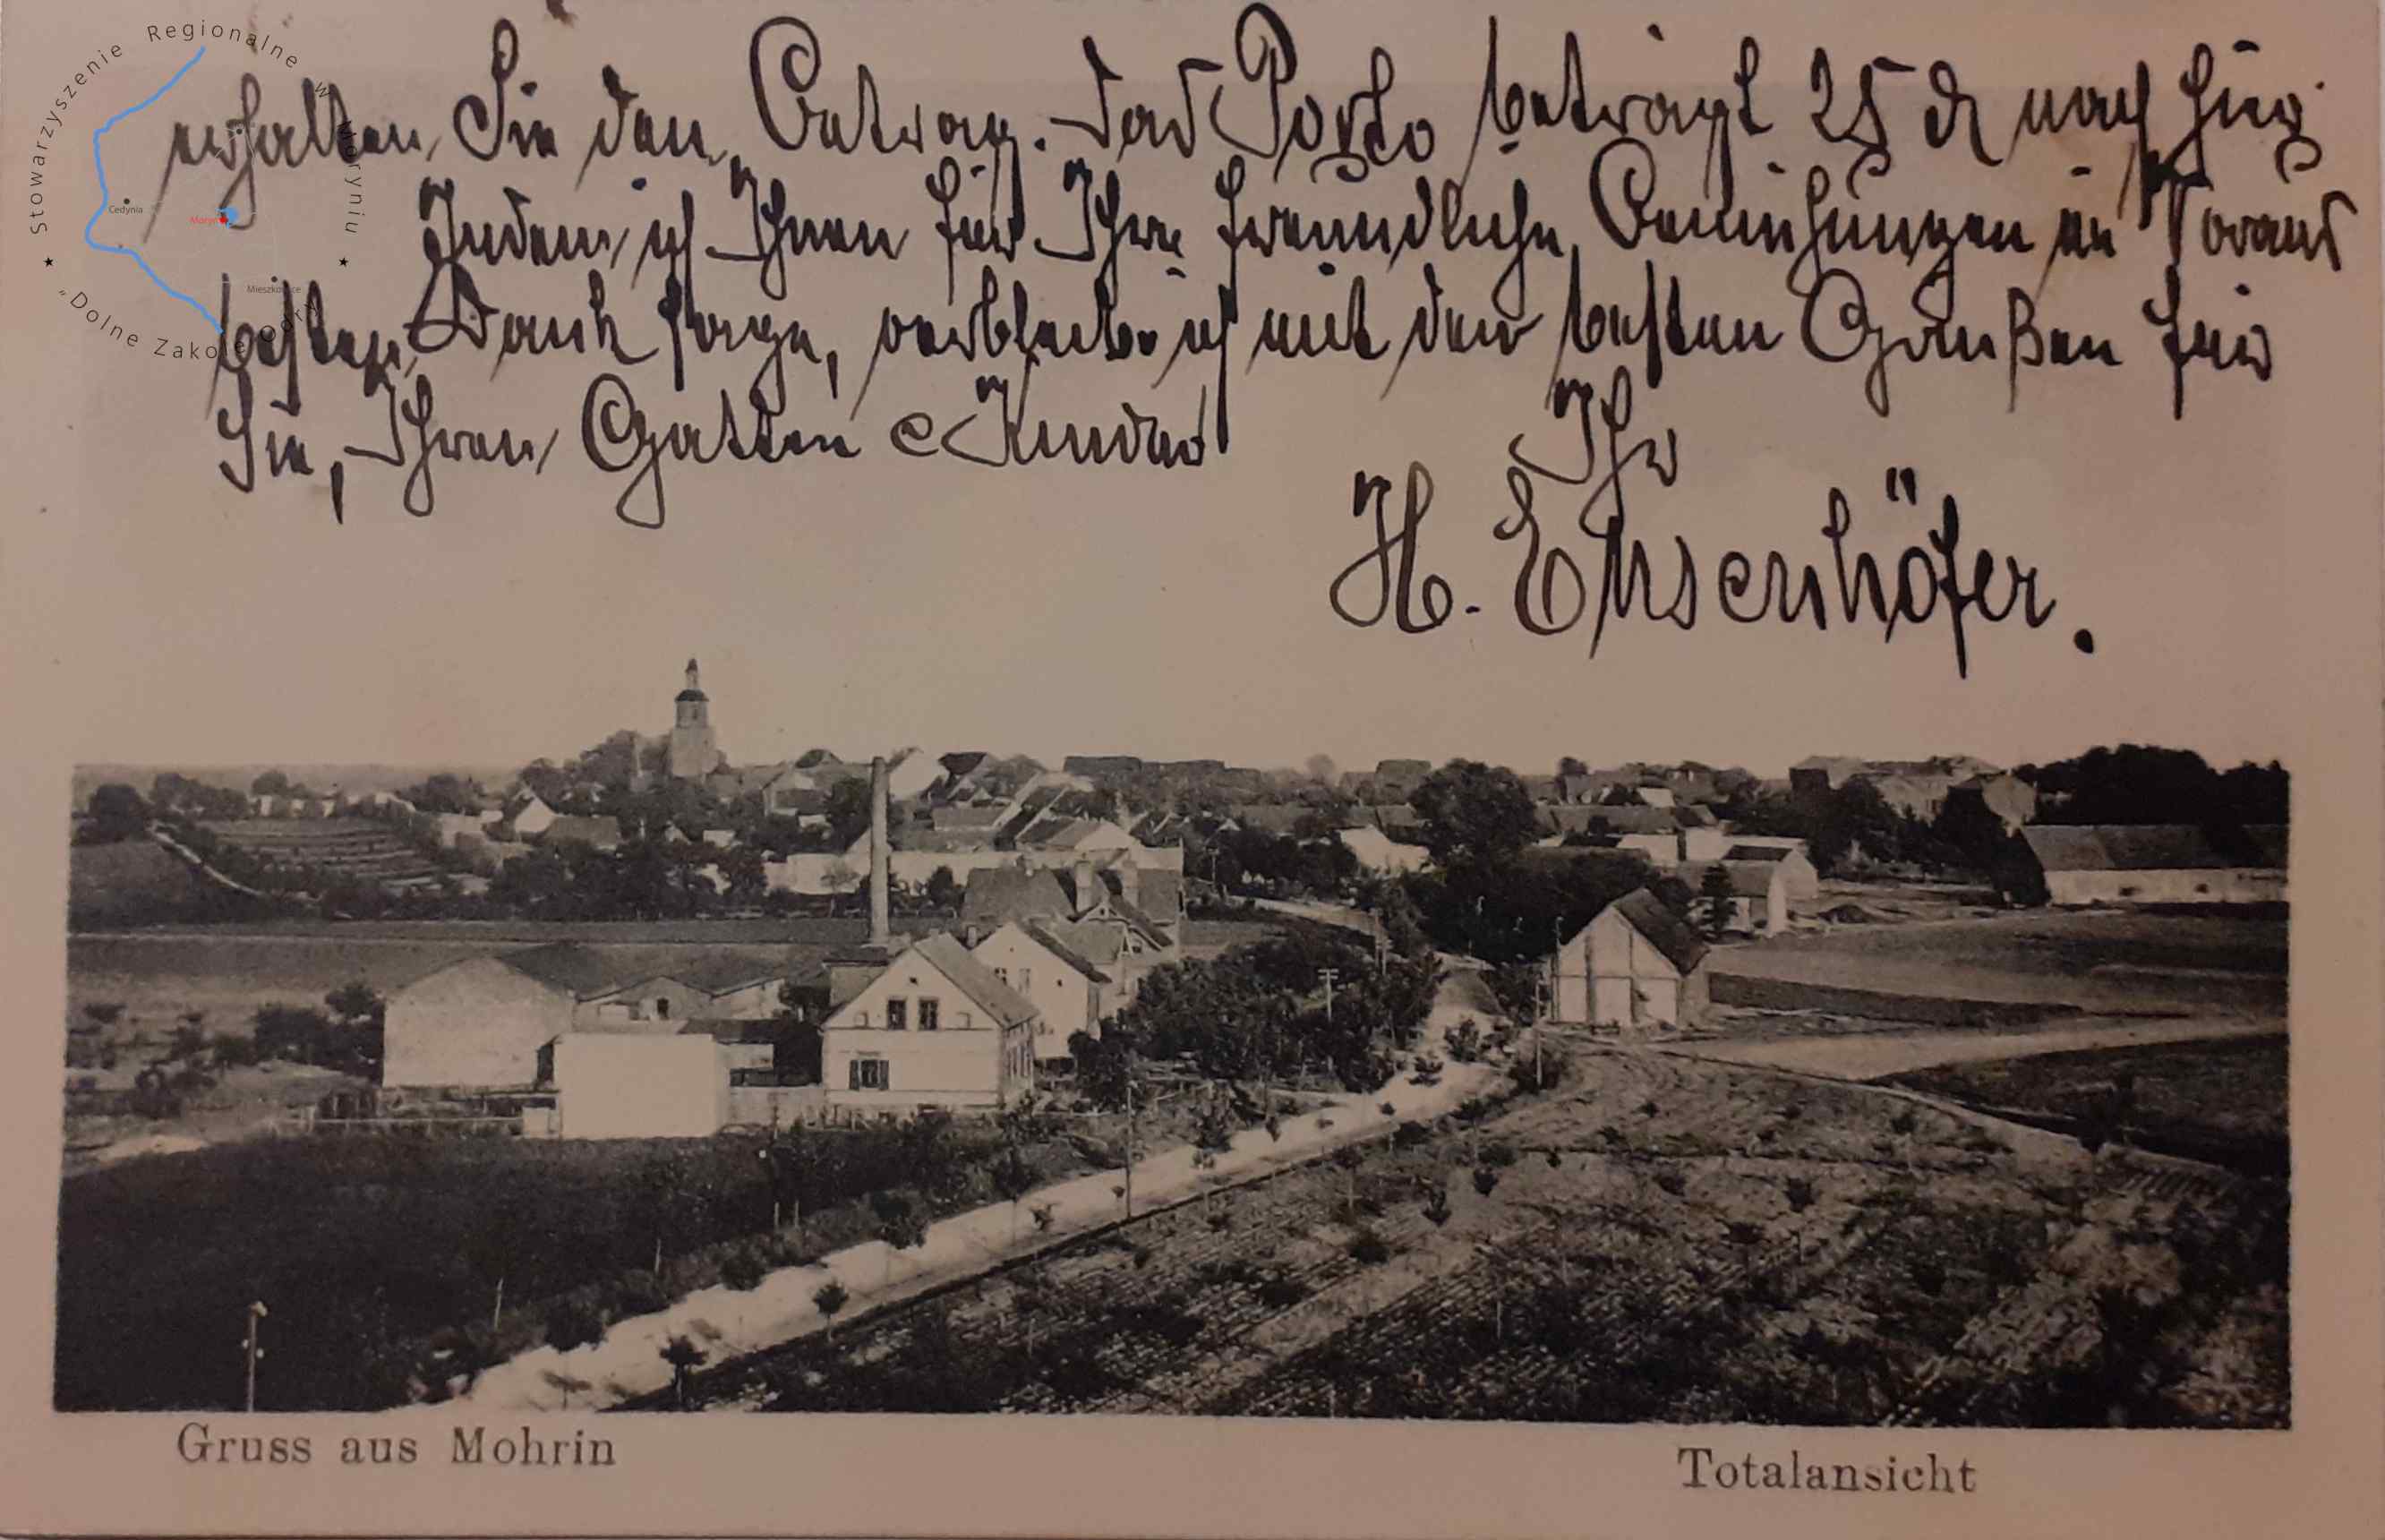 Stowarzyszenie Regionalne w Moryniu
"Dolne Zakole Odry"
Cedynia
Moryń
Mieszkowice
erhalten Sie den Betrag. Das Porto beträgt 25 ₰ nach hier.
Indem ich Ihnen für Ihre freundliche Bemühungen im Voraus
besten Dank sage, verbleibe ich mit den besten Grüßen für
Sie, Ihren Gatten & Kinder
Ihr
H.
Gruss aus Mohrin
Totalansicht